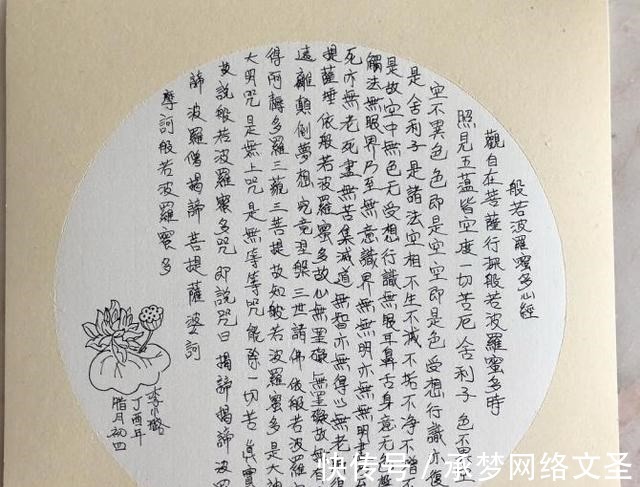 般若波羅蜜多心經
觀自在菩薩行深般若波羅蜜多時
照見五蕴皆空度一切苦厄舍利子色不異
空不異色色即是空空即是色受想行識亦復
是舍利子是諸法空相不生不滅不垢不净不增不
是故空中無色无受想行識無眼耳鼻舌身意无
觸法無眼界乃至無意識界無無明亦無無明盡
死亦無老死盡無苦集滅道無智亦無得以無
提薩埵依般若波羅蜜多故心無罣礙無罣礙故無有
遠離顛倒夢想究竟涅槃三世諸佛依般若波羅
得阿耨多羅三藐三菩提故知般若波羅蜜多是大神
大明咒是無上咒是無等等咒能除一切苦真實
故說般若波羅蜜多咒即說咒曰揭諦揭諦波羅
諦波羅僧揭諦菩提薩婆訶
摩訶般若波羅蜜多
李小璐
丁酉年
腊月初四
快传号/承梦网络文圣